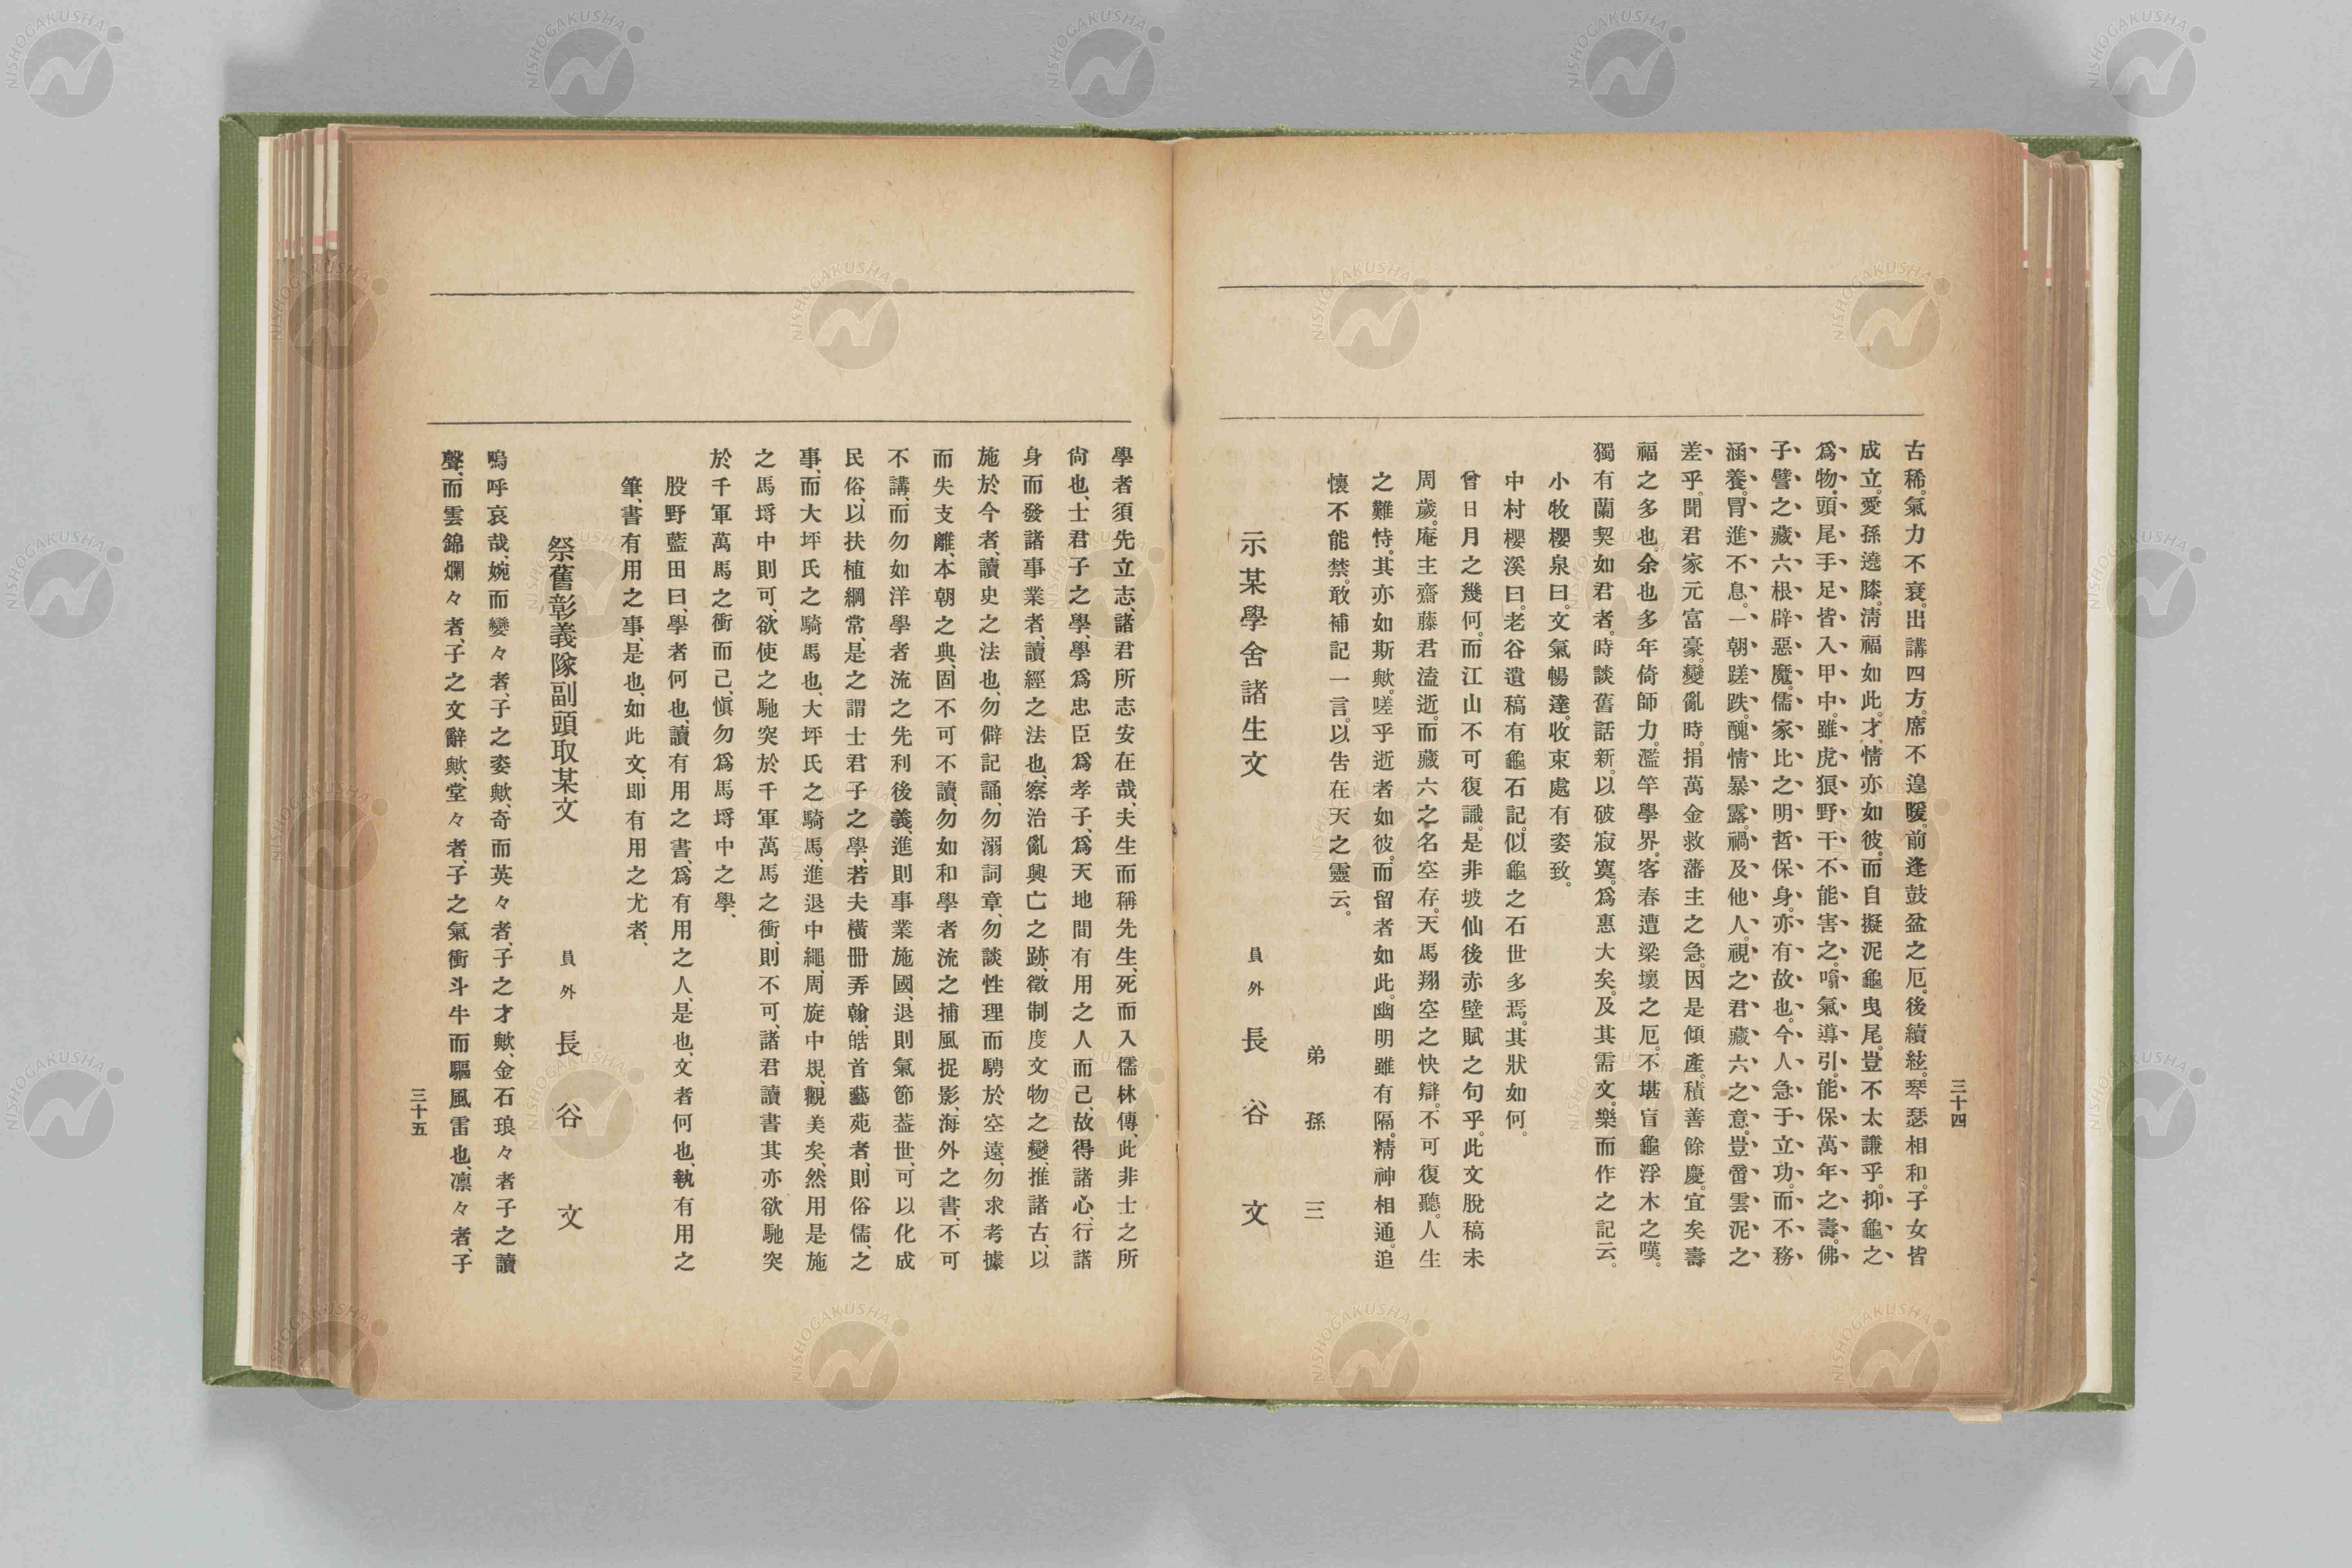 三十四
古稀。氣力不衰。出講四方。席不遑暖。前逢鼓盆之厄。後續絃。琴瑟相和。子女皆
成立。愛孫遶膝。淸福如此。才情亦如彼。而自擬泥龜曳尾。豈不太謙乎。抑、龜、之、
爲、物、頭、尾、手、足、皆、入、甲、中。雖、虎、狼、野、干、不、能、害、之。噏、氣、導、引。能、保、萬、年、之、壽。佛、
子、譬、之、藏、六、根、辟、惡、魔。儒、家、比、之、明、哲、保、身。亦、有、故、也。今、人、急、于、立、功。而、不、務、
涵、養。冐、進、不、息。一、朝、蹉、跌。醜、情、暴、露。禍、及、他、人。視、之、君、藏、六、之、意。豈、啻、雲、泥、之、
差、乎。聞君家元富豪。變亂時。捐萬金救藩主之急。因是傾產。積善餘慶。宜矣壽
福之多也。余也多年倚師力。濫竽學界。客春遭梁壞之厄。不堪盲龜浮木之嘆。
獨有蘭契如君者。時談舊話新。以破寂寞。爲惠大矣。及其需文。樂而作之記云。
小牧櫻泉曰。文氣暢達。收束處有姿致。
中村櫻溪曰。老谷遺稿有龜石記。似龜之石世多焉。其狀如何。
曾日月之幾何。而江山不可復識。是非坡仙後赤壁賦之句乎。此文脫稿未
周歲。庵主齋藤君溘逝。而藏六之名空存。天馬翔空之快辯。不可復聽。人生
之難恃。其亦如斯歟。嗟乎逝者如彼。而留者如此。幽明雖有隔。精神相通。追
懷不能禁。敢補記一言。以告在天之靈云。
弟 孫 三
示某學舍諸生文 員外 長谷 文
學者須先立志、諸君所志安在哉、夫生而稱先生、死而入儒林傳、此非士之所
尙也、士君子之學、學爲忠臣爲孝子、爲天地間有用之人而已、故得諸心、行諸
身而發諸事業者、讀經之法也、察治亂興亡之跡、徵制度文物之變、推諸古、以
施於今者、讀史之法也、勿僻記誦、勿溺詞章、勿談性理而騁於空遠、勿求考據
而失支離、本朝之典、固不可不讀、勿如和學者流之捕風捉影、海外之書、不可
不講、而勿如洋學者流之先利後義、進則事業施國、退則氣節葢世、可以化成
民俗、以扶植綱常、是之謂士君子之學、若夫橫册弄翰、皓首藝苑者、則俗儒、之
事、而大坪氏之騎馬也、大坪氏之騎馬、進退中繩、周旋中規、觀美矣、然用是施
之馬埓中則可、欲使之馳突於千軍萬馬之衝、則不可、諸君讀書其亦欲馳突
於千軍萬馬之衝而已、愼勿爲馬埓中之學、
股野藍田曰、學者何也、讀有用之書、爲有用之人、是也、文者何也、執有用之
筆、書有用之事、是也、如此文、卽有用之尤者、
祭舊彰義隊副頭取某文 員外 長谷 文
嗚呼哀哉、婉而孌々者、子之姿歟、奇而英々者、子之才歟、金石琅々者子之讀
聲、而雲錦爛々者、子之文辭歟、堂々者、子之氣衝斗牛而驅風雷也、凛々者、子
三十五